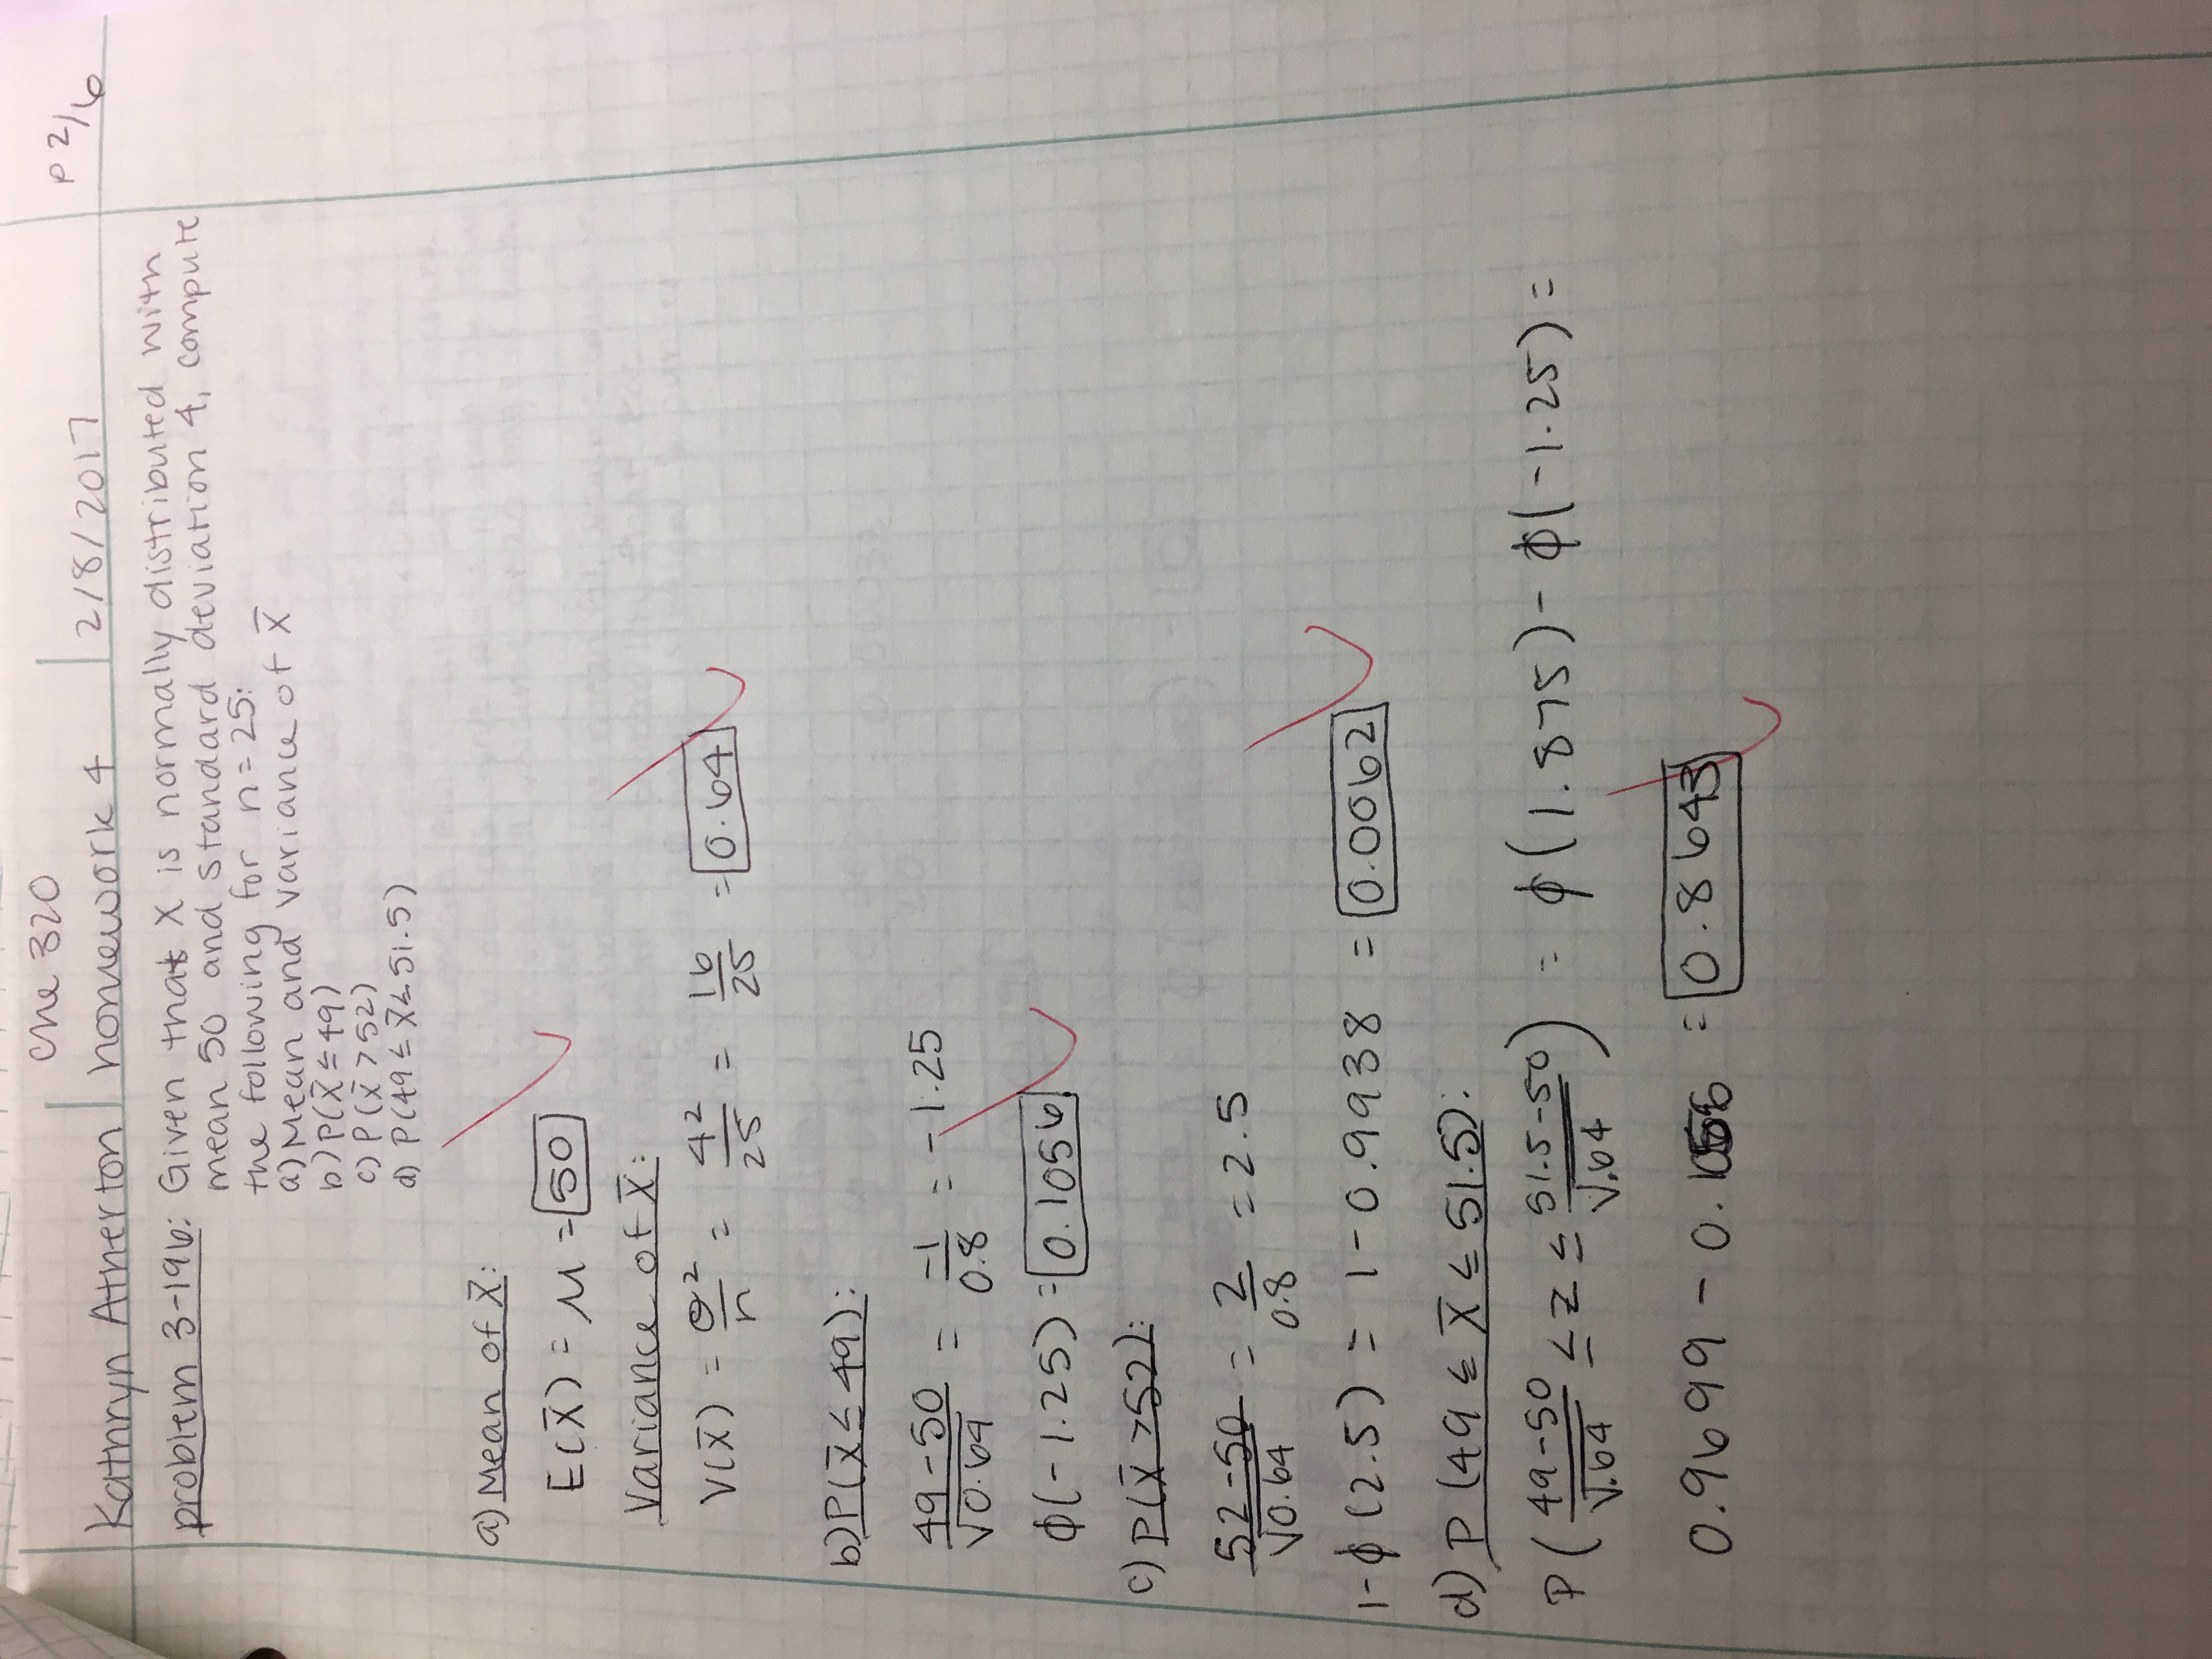 Che 320
Kathryn Atherton homework 4 2/8/2017 P 2/6
problem 3-196: Given that X is normally distributed with
mean 50 and standard deviation 4, compute
the following for n = 25:
a) Mean and variance of X̄
b) P(X̄ ≤ 49)
c) P(X̄ > 52)
d) P(49 ≤ X̄ ≤ 51.5)
a) Mean of X̄:
E(X̄) = μ = 50
Variance of X̄:
V(X̄) = σ²/n = 4²/25 = 16/25 = 0.64
b) P(X̄ ≤ 49):
49-50/√0.64 = -1/0.8 = -1.25
ϕ(-1.25) = 0.1056
c) P(X̄ > 52):
52-50/√0.64 = 2/0.8 = 2.5
1-ϕ(2.5) = 1-0.9938 = 0.0062
d) P(49 ≤ X̄ ≤ 51.5):
P(49-50/√.64 ≤ z ≤ 51.5-50/√.64) = ϕ(1.875) - ϕ(-1.25) =
0.9699 - 0.1056 = 0.8643